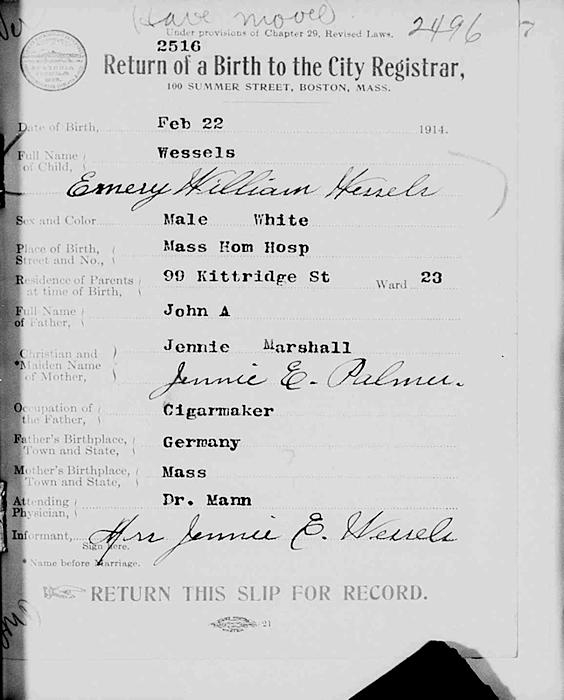 Have moved
Under provisions of Chapter 29, Revised Laws. 2496 7
2516
Return of a Birth to the City Registrar,
100 SUMMER STREET, BOSTON, MASS.
Date of Birth, Feb 22 1914.
Full Name of Child, Wessels
Emery William Wessels
Sex and Color Male White
Place of Birth, Street and No., Mass Hom Hosp
Residence of Parents at time of Birth, 99 Kittridge St Ward 23
Full Name of Father, John A
Christian and *Maiden Name of Mother, Jennie Marshall
Jennie E. Palmer.
Occupation of the Father, Cigarmaker
Father's Birthplace, Town and State, Germany
Mother's Birthplace, Town and State, Mass
Attending Physician, Dr. Mann
Informant, Mrs Jennie E. Wessels
Sign here.
*Name before Marriage.
RETURN THIS SLIP FOR RECORD.
21